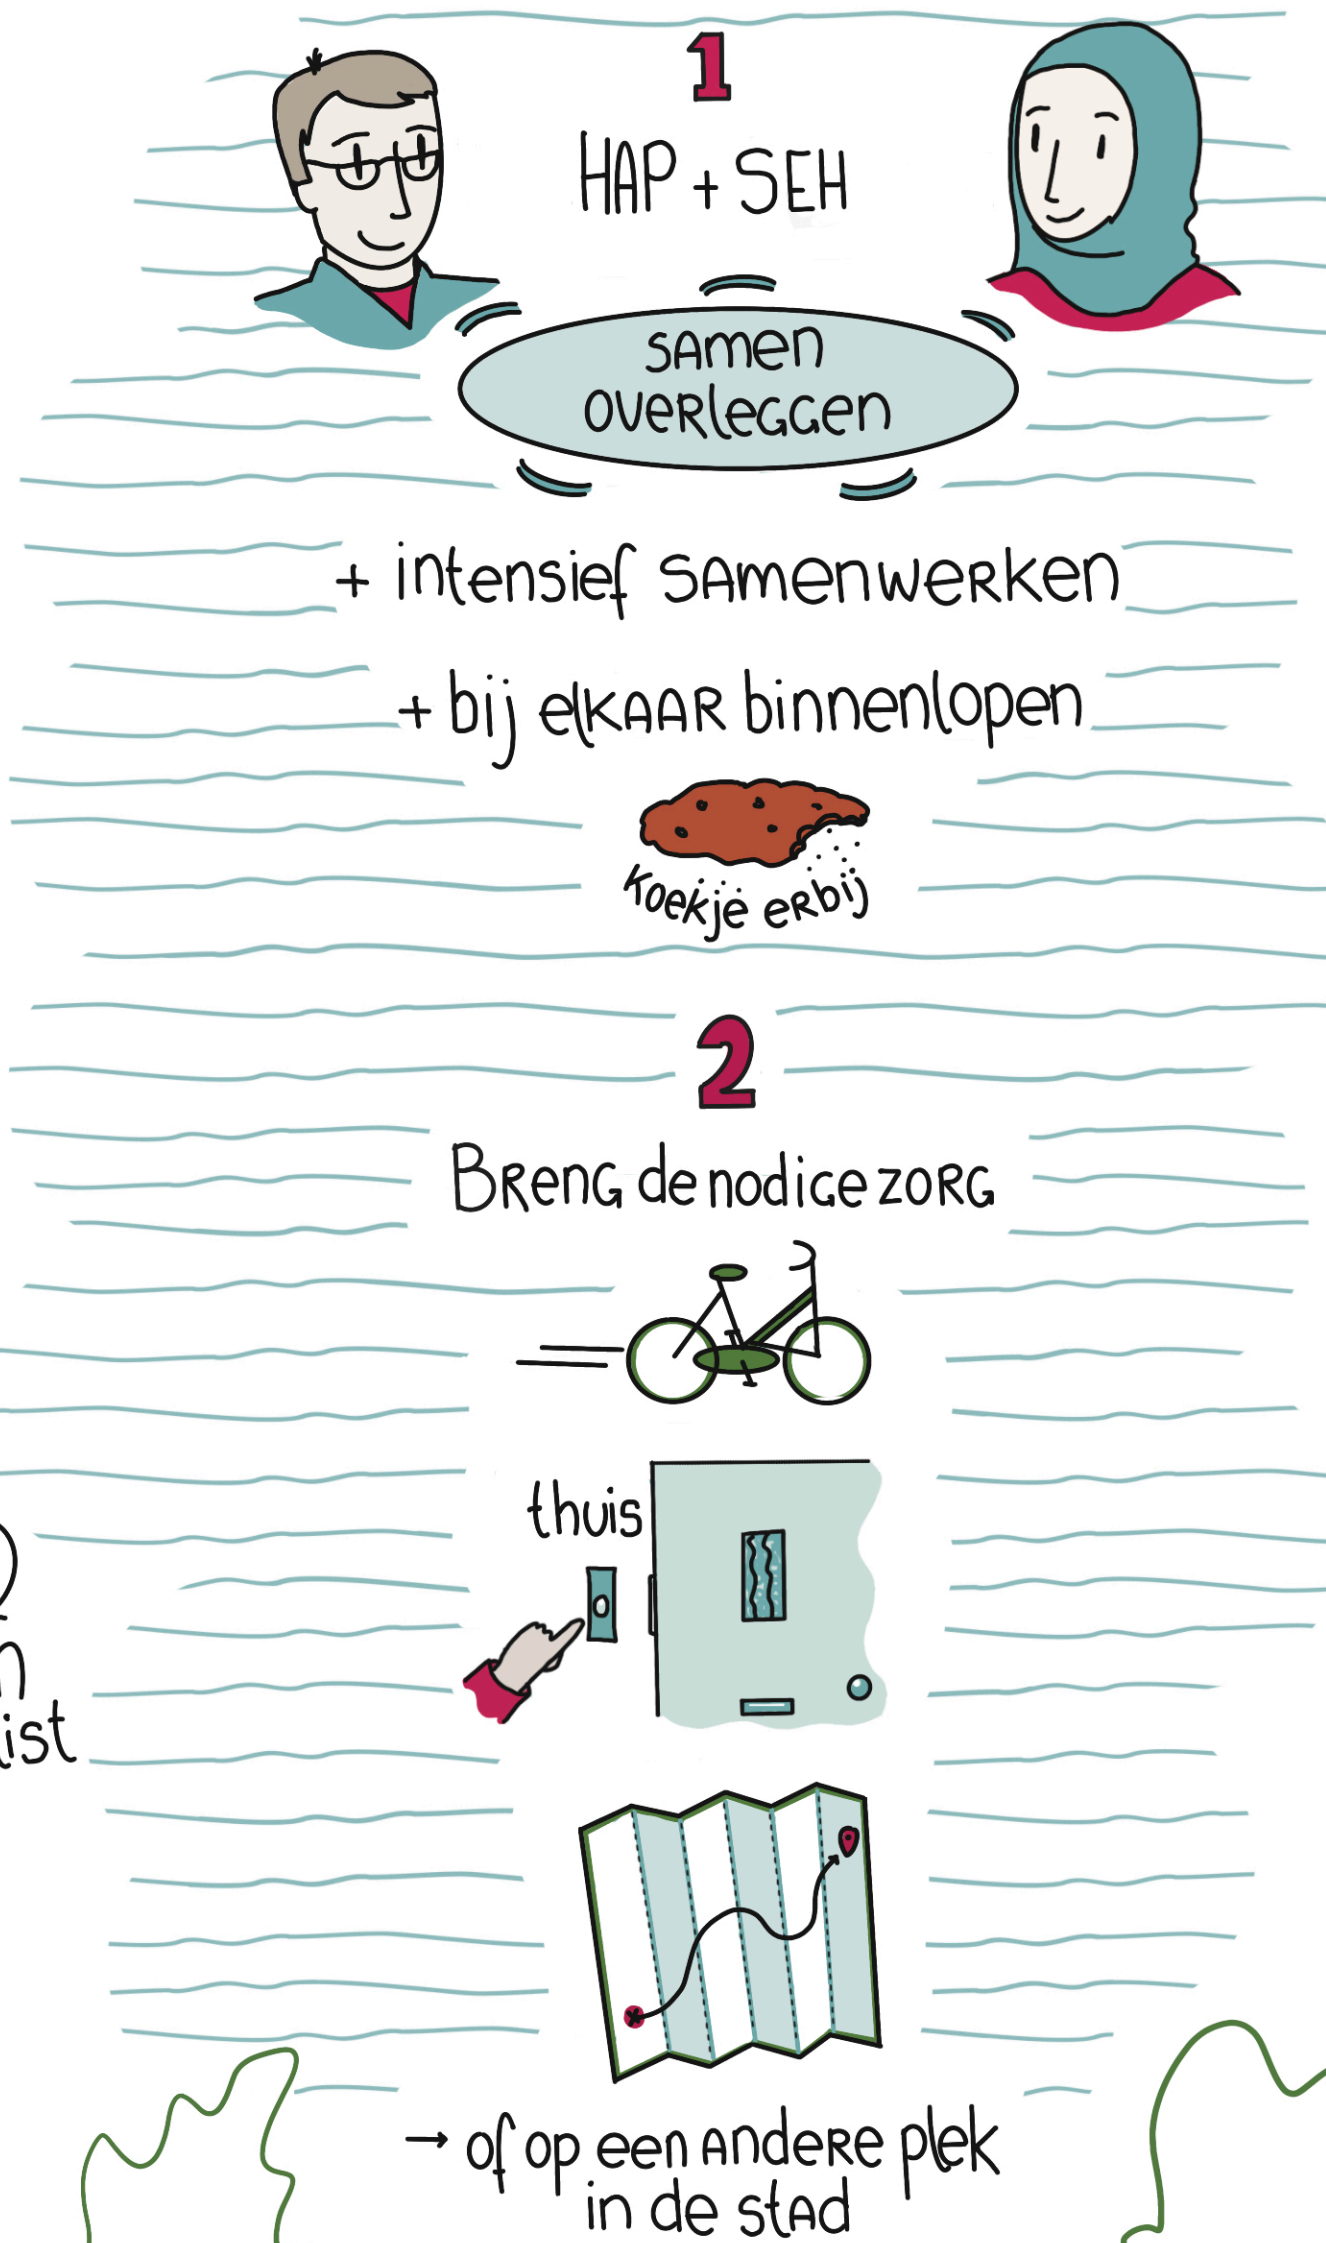 1
HAP + SEH
samen
overleggen
+ intensief samenwerken
+ bij elkaar binnenlopen
koekje erbij
2
Breng de nodige zorg
thuis
→ of op een andere plek
in de stad